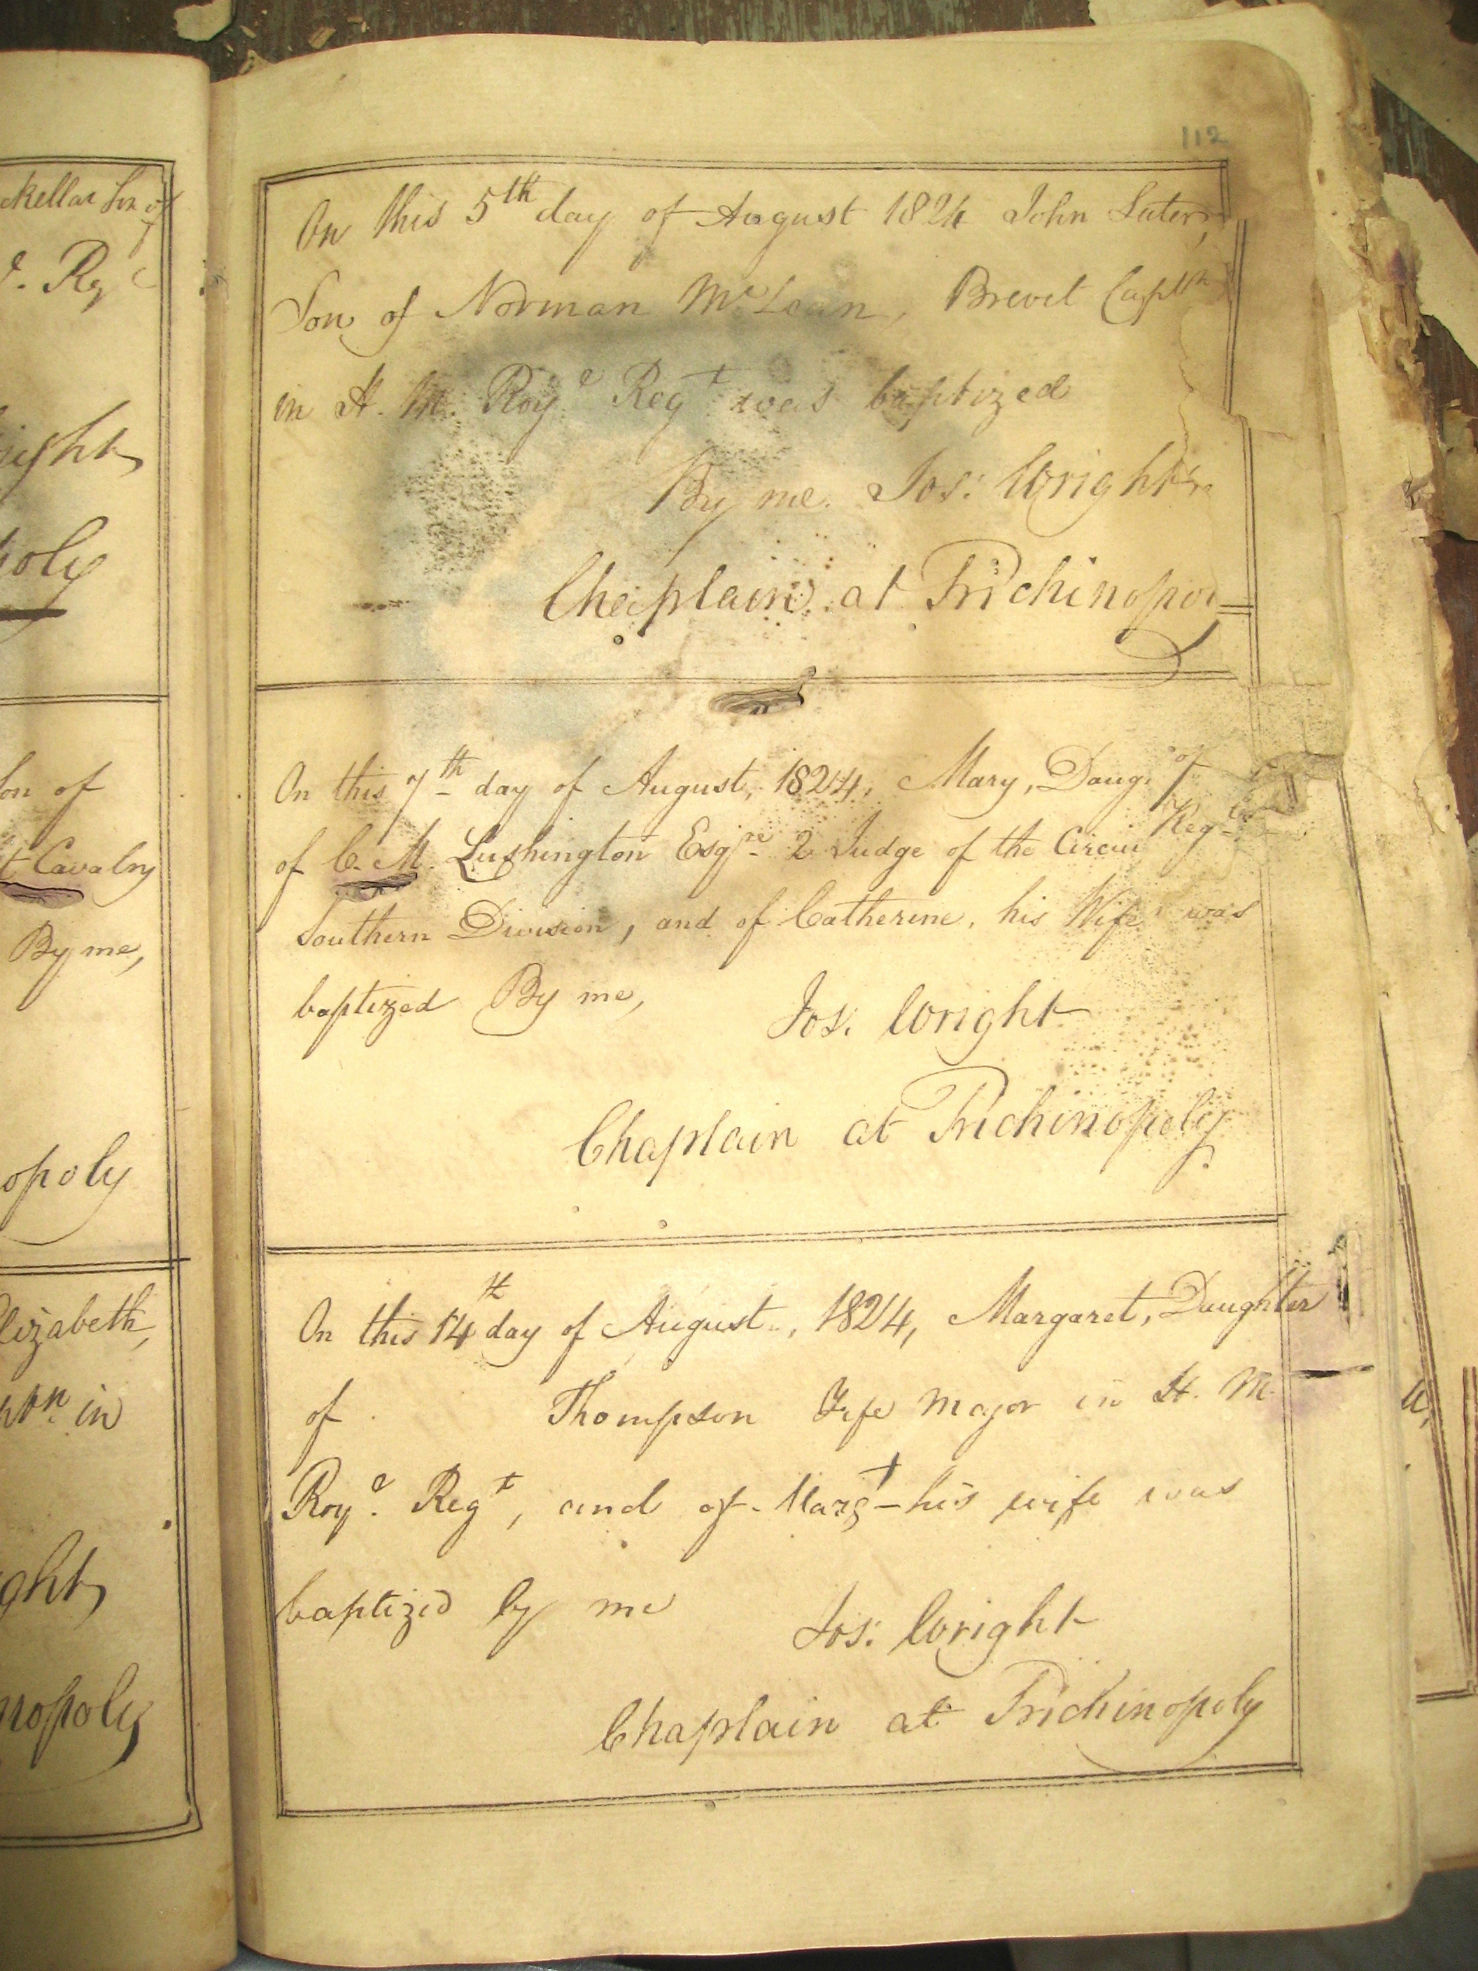 ckellar Son of
e. Reg
ight
poly
Son of
t Cavalry
By me,
opoly
Elizabeth,
in
ght,
nopoly
112
On this 5th day of August 1824 John
Son of Norman McLean, Brevet Captn
in H. M. Roye Regt was baptized
By me. Jos: Wright
Chaplain at Trichinopo
On this 7th day of August, 1824, Mary, Daugr of
of C. M. Lushington Esqre 2 Judge of the Circui
Southern Division, and of Catherine, his Wife was
baptized By me,
Jos: Wright
Chaplain at Trichinopoly.
On this 14th day of August, 1824, Margaret, Daughter
of Thompson Fife Major in H. M.
Roye Regt, and of Margt his wife was
baptized by me
Jos: Wright
Chaplain at Trichinopoly